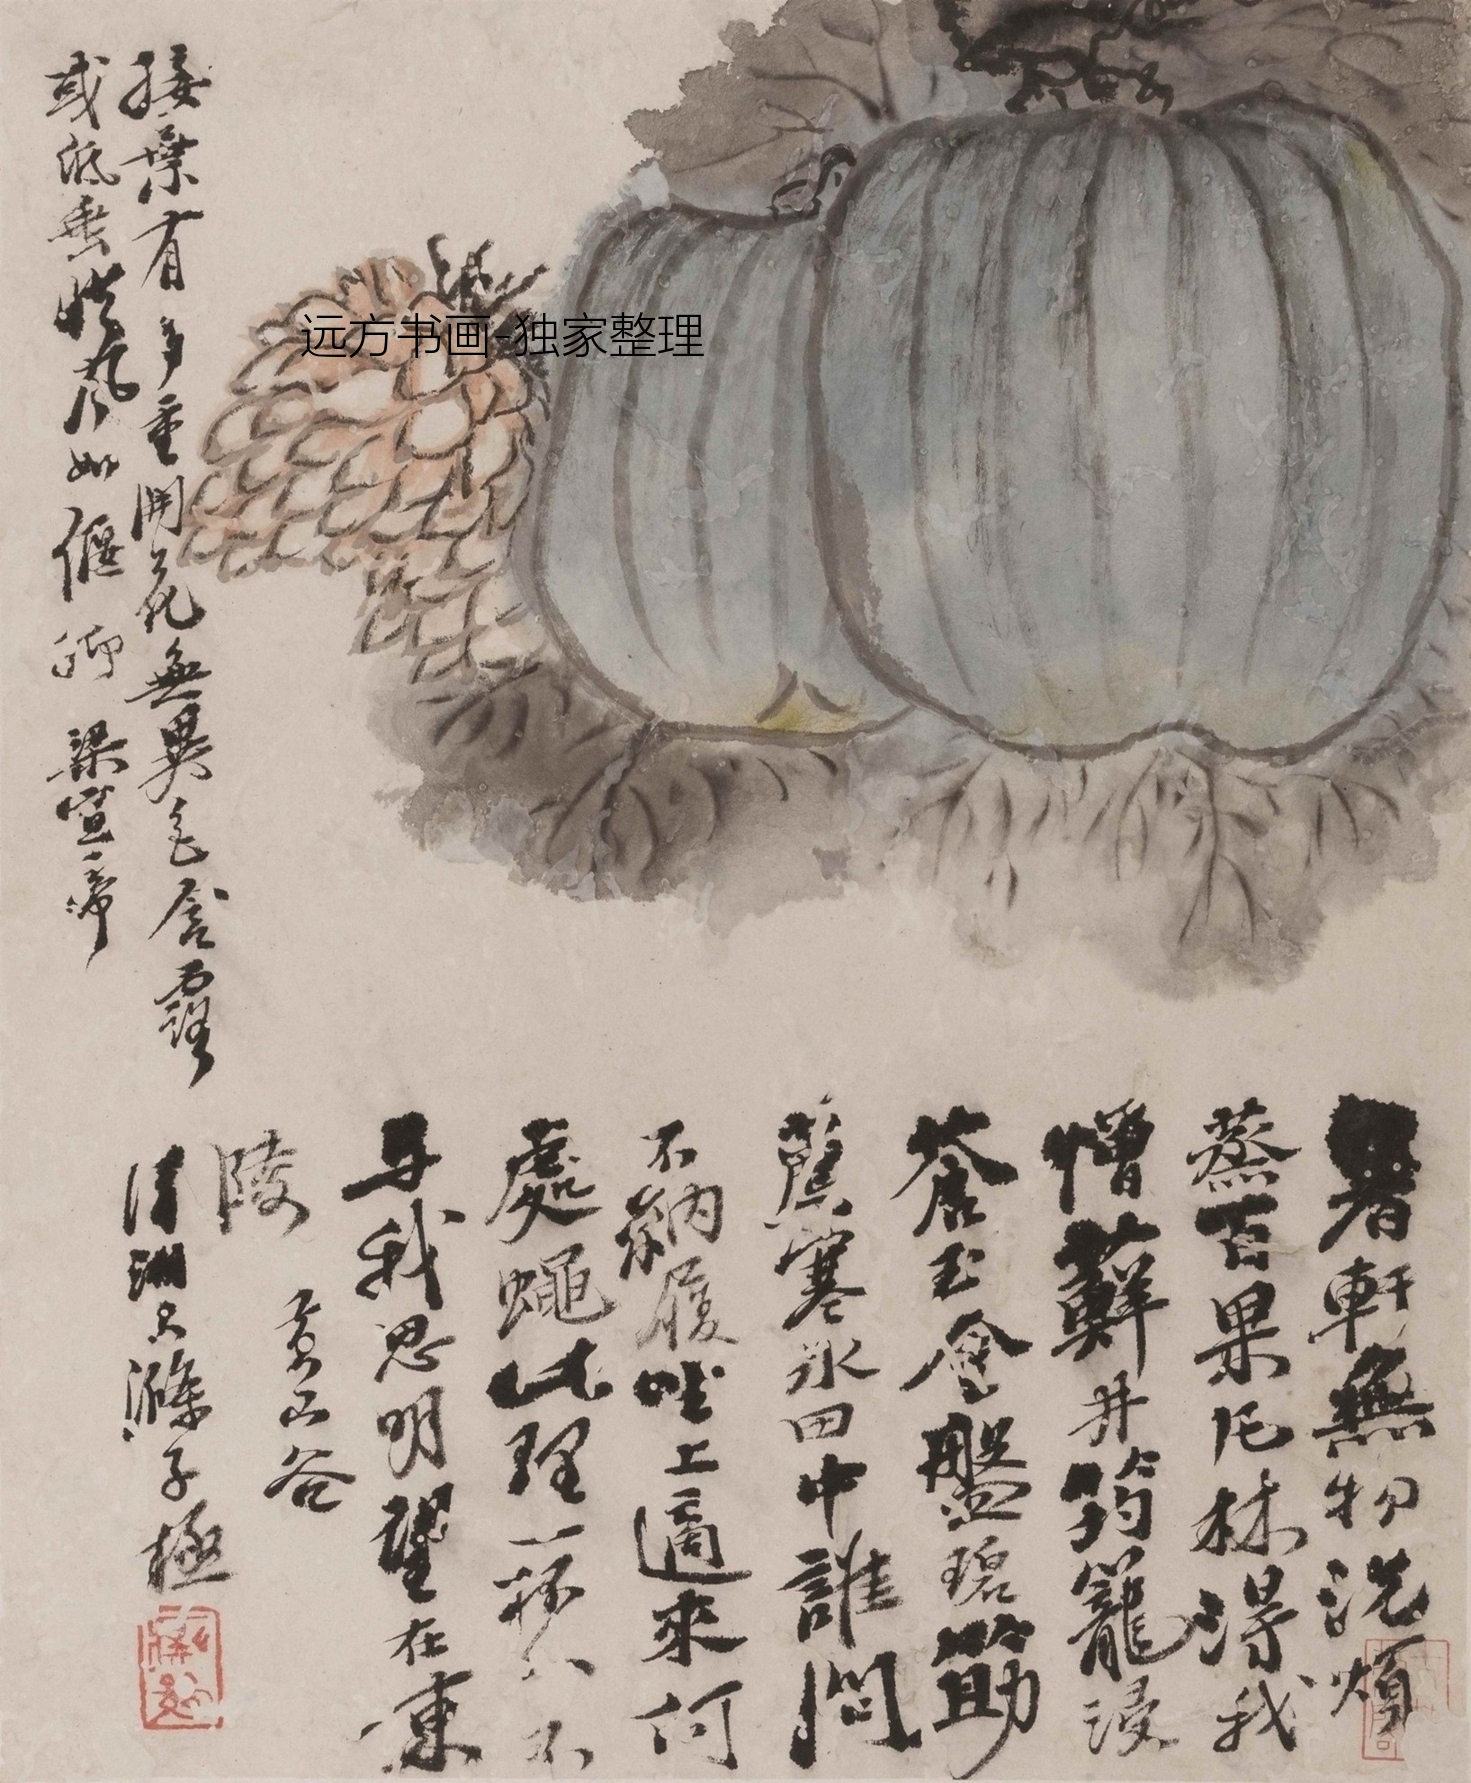 接葉有多重開花無異色含露
或低垂從風如偃抑 梁宣帝
暑軒無物洗煩
蒸百果凡材得我
憎蘚井筠籠浸
蒼玉金盤碧筯
薦寒冰田中誰問
不納履坐上適來何
處蠅此理一杯分不
與我思明望在東
陵 黃山谷
清湘大滌子極
远方书画-独家整理